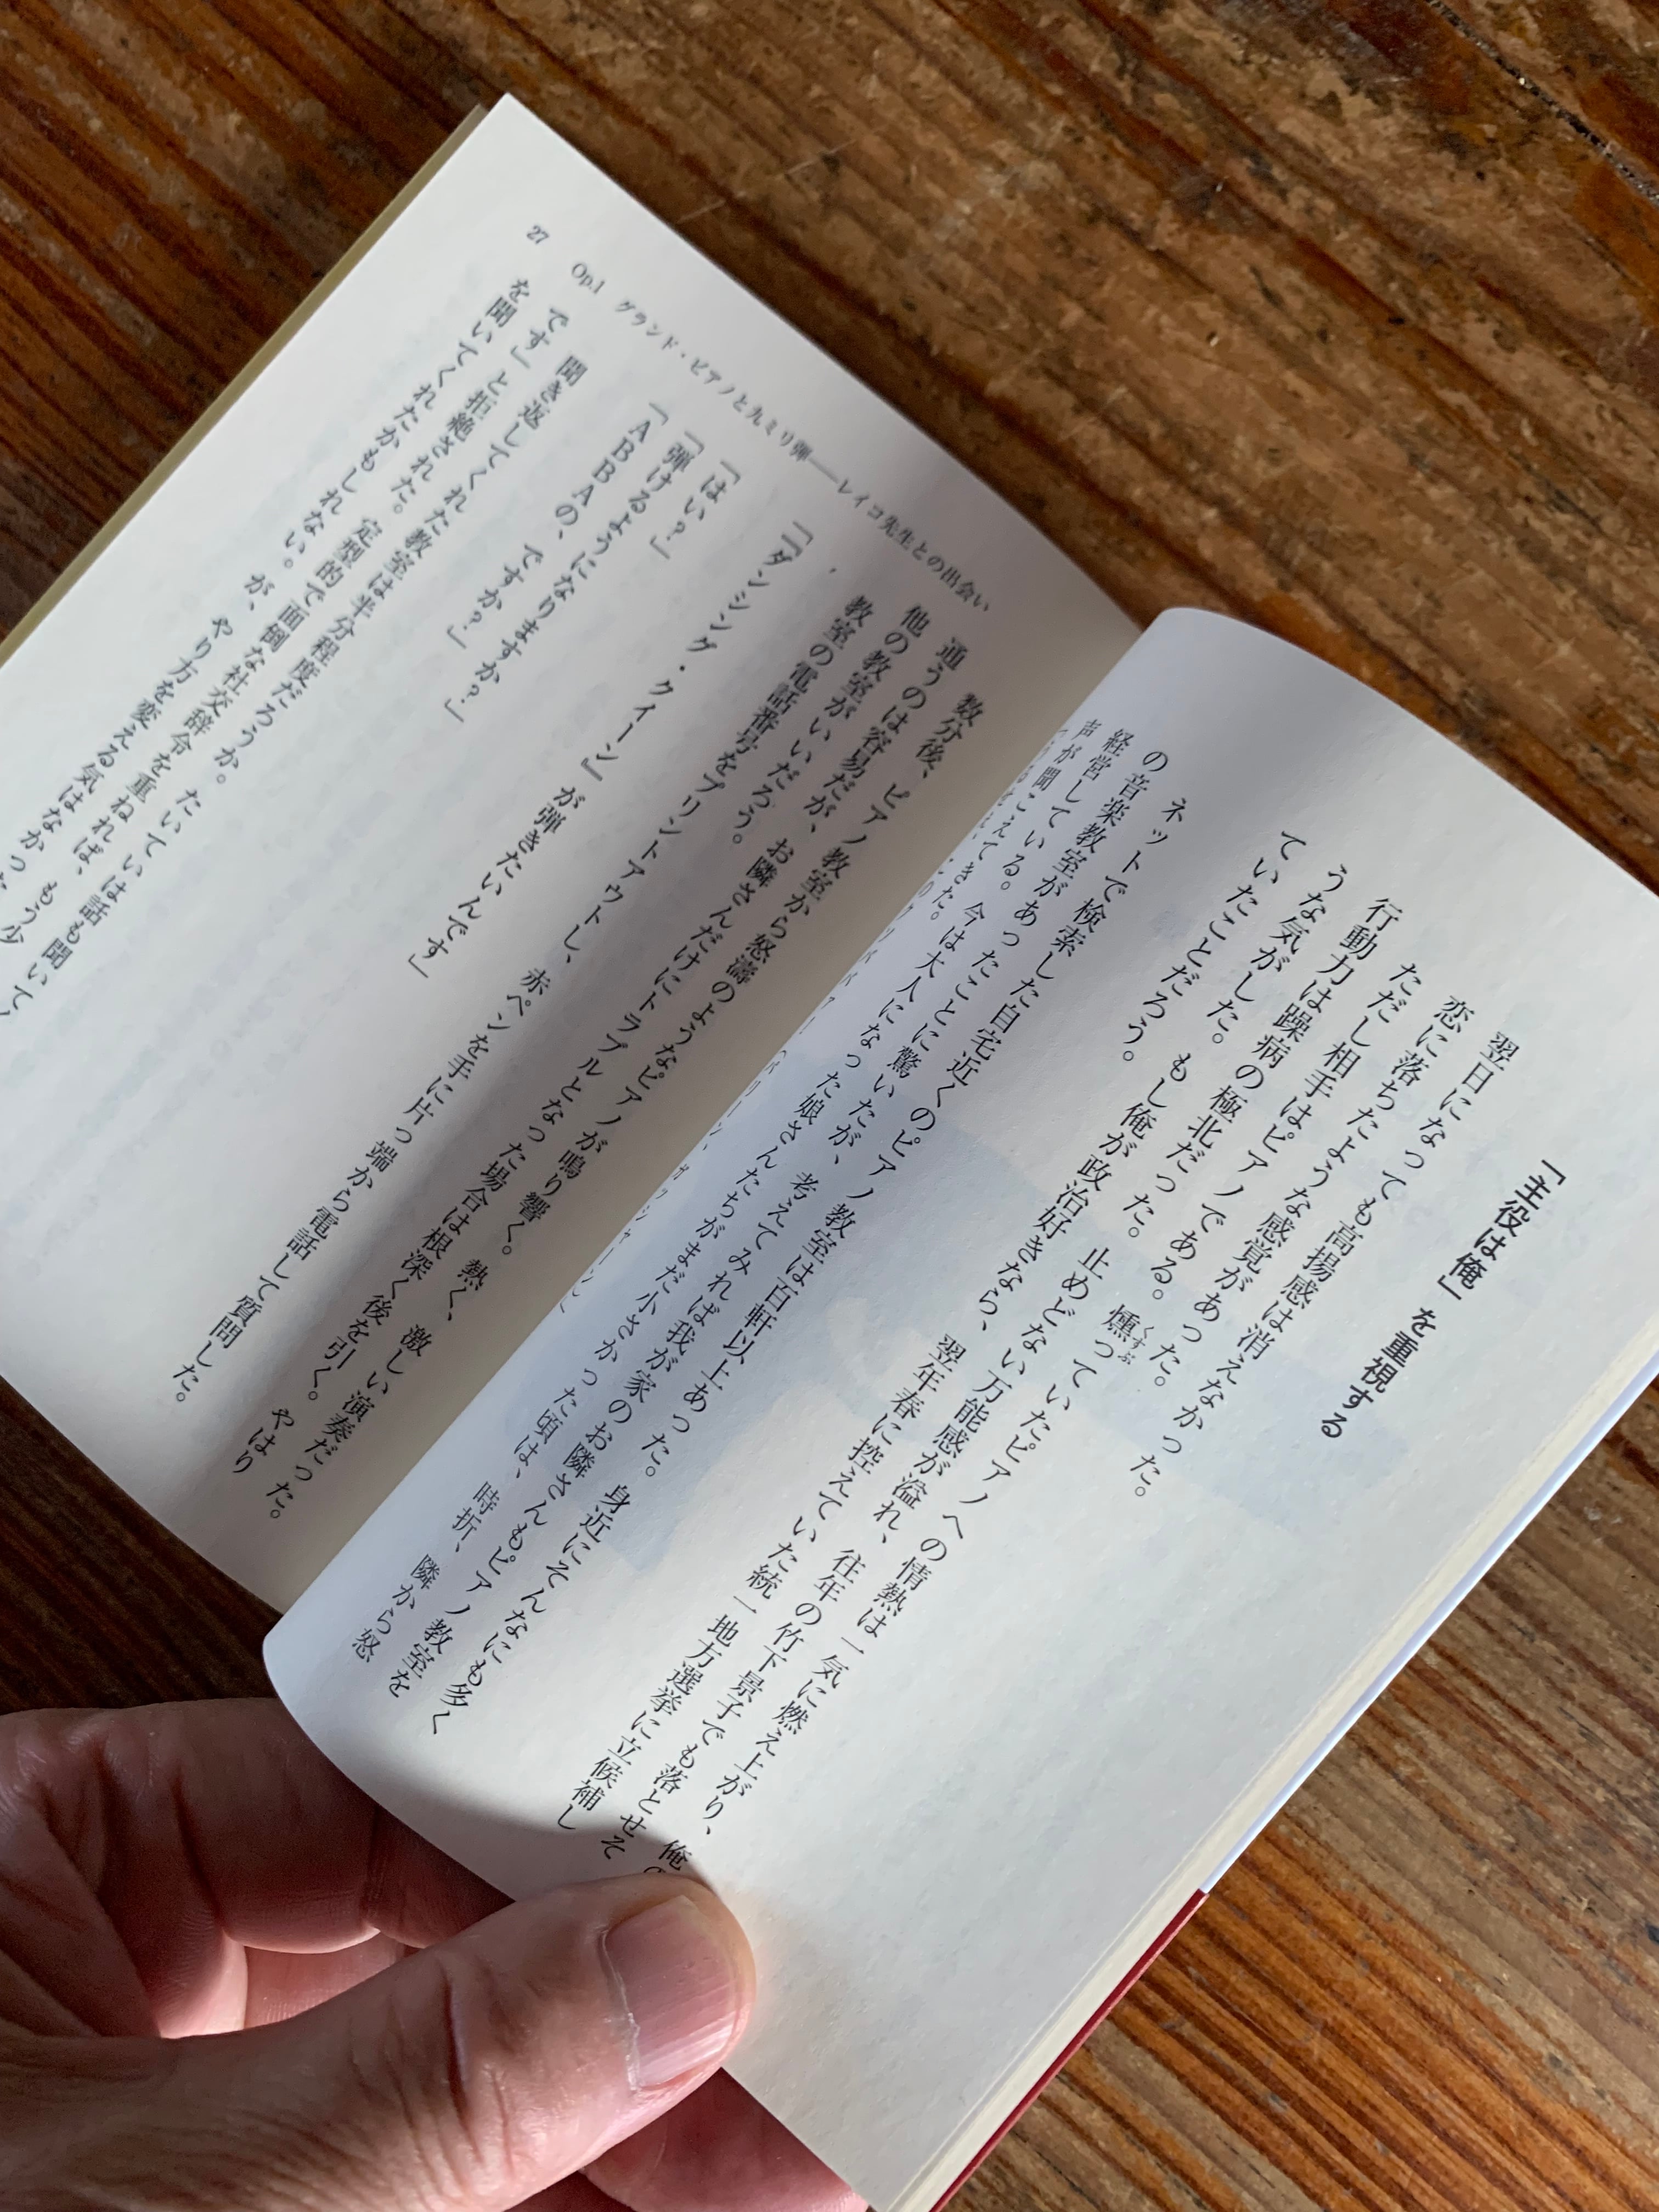 「主役は俺」を重視する
翌日になっても高揚感は消えなかった。
恋に落ちたような感覚があった。
ただし相手はピアノである。燻っていたピアノへの情熱は一気に燃え上がり、俺の
くすぶ
行動力は躁病の極北だった。止めどない万能感が溢れ、往年の竹下景子でも落とせそ
うな気がした。もし俺が政治好きなら、翌年春に控えていた統一地方選挙に立候補し
ていたことだろう。
ネットで検索した自宅近くのピアノ教室は百軒以上あった。身近にそんなにも多く
の音楽教室があったことに驚いたが、考えてみれば我が家のお隣さんもピアノ教室を
経営している。今は大人になった娘さんたちがまだ小さかった頃は、時折、隣から怒
声が聞こえてきた。
数分後、ピアノ教室から怒濤のようなピアノが鳴り響く。熱く、激しい演奏だった。
通うのは容易だが、お隣さんだけにトラブルとなった場合は根深く後を引く。やはり
他の教室がいいだろう。
教室の電話番号をプリントアウトし、赤ペンを手に片っ端から電話して質問した。
「『ダンシング・クイーン』が弾きたいんです」
「はい?」
「弾けるようになりますか?」
「ABBAの、ですか?」
聞き返してくれた教室は半分程度だろうか。たいていは話も聞いて
です」と拒絶された。定型的で面倒な社交辞令を重ねれば、もう少
を聞いてくれたかもしれない。が、やり方を変える気はなかった
27 Op.1 グランド・ピアノと九ミリ弾——レイコ先生との出会い